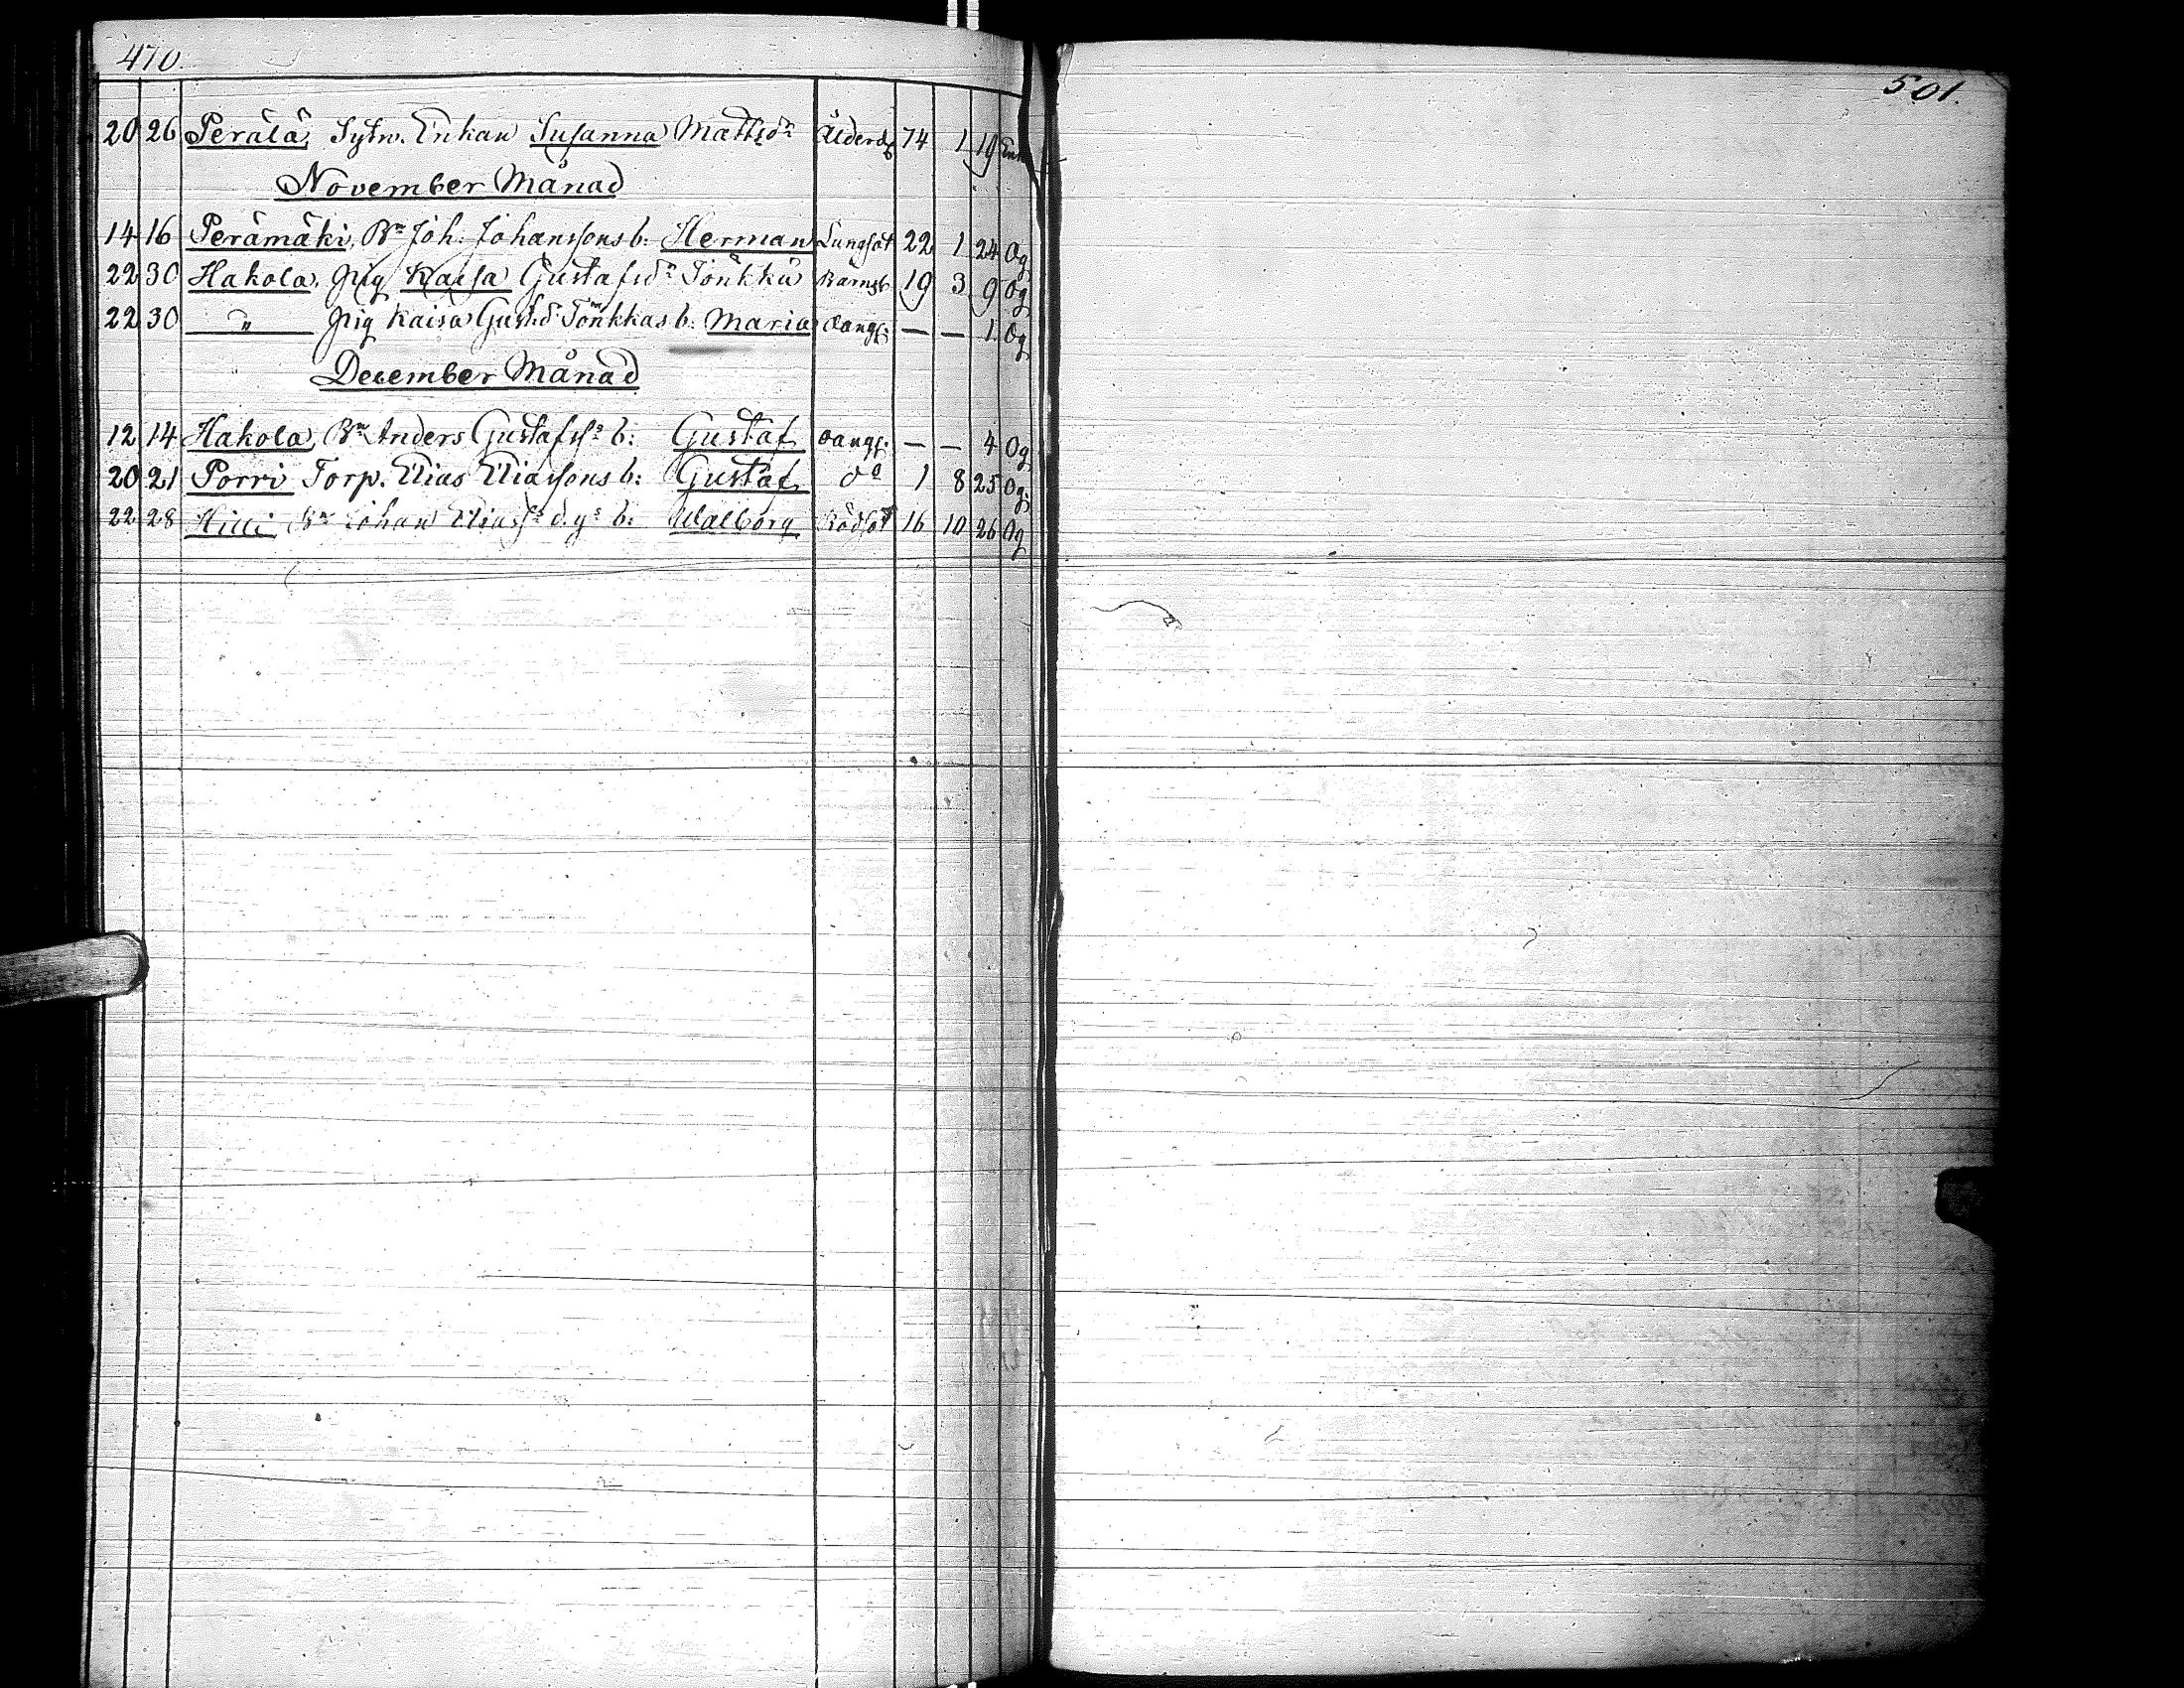 470.
20 26 Perälä, Sytn. Enkan Susanna Mattsdr Ålderd. 74 1 19 Enk
November Månad
14 16 Perämäki, Bn Joh: Johanssons b: Herman Lungsot 22 1 24 Og
22 30 Hakola, Pig Kaisa Gustafsdr Jönkkä Barnsb. 19 3 9 Og
22 30 " Pig Kaisa Gustsd Jönkkas b: Maria oang: — — 1. Og
December Månad
12 14 Hakola, Bn Anders Gustafss b: Gustaf oang: — — 4 Og
20 21 Porri Torp. Elias Eliassons b: Gustaf do 1 8 25 Og.
22 28 Hilli Bn Johan Eliass d.ys b: Walborg Rödsot 16 10 26 Og
501.